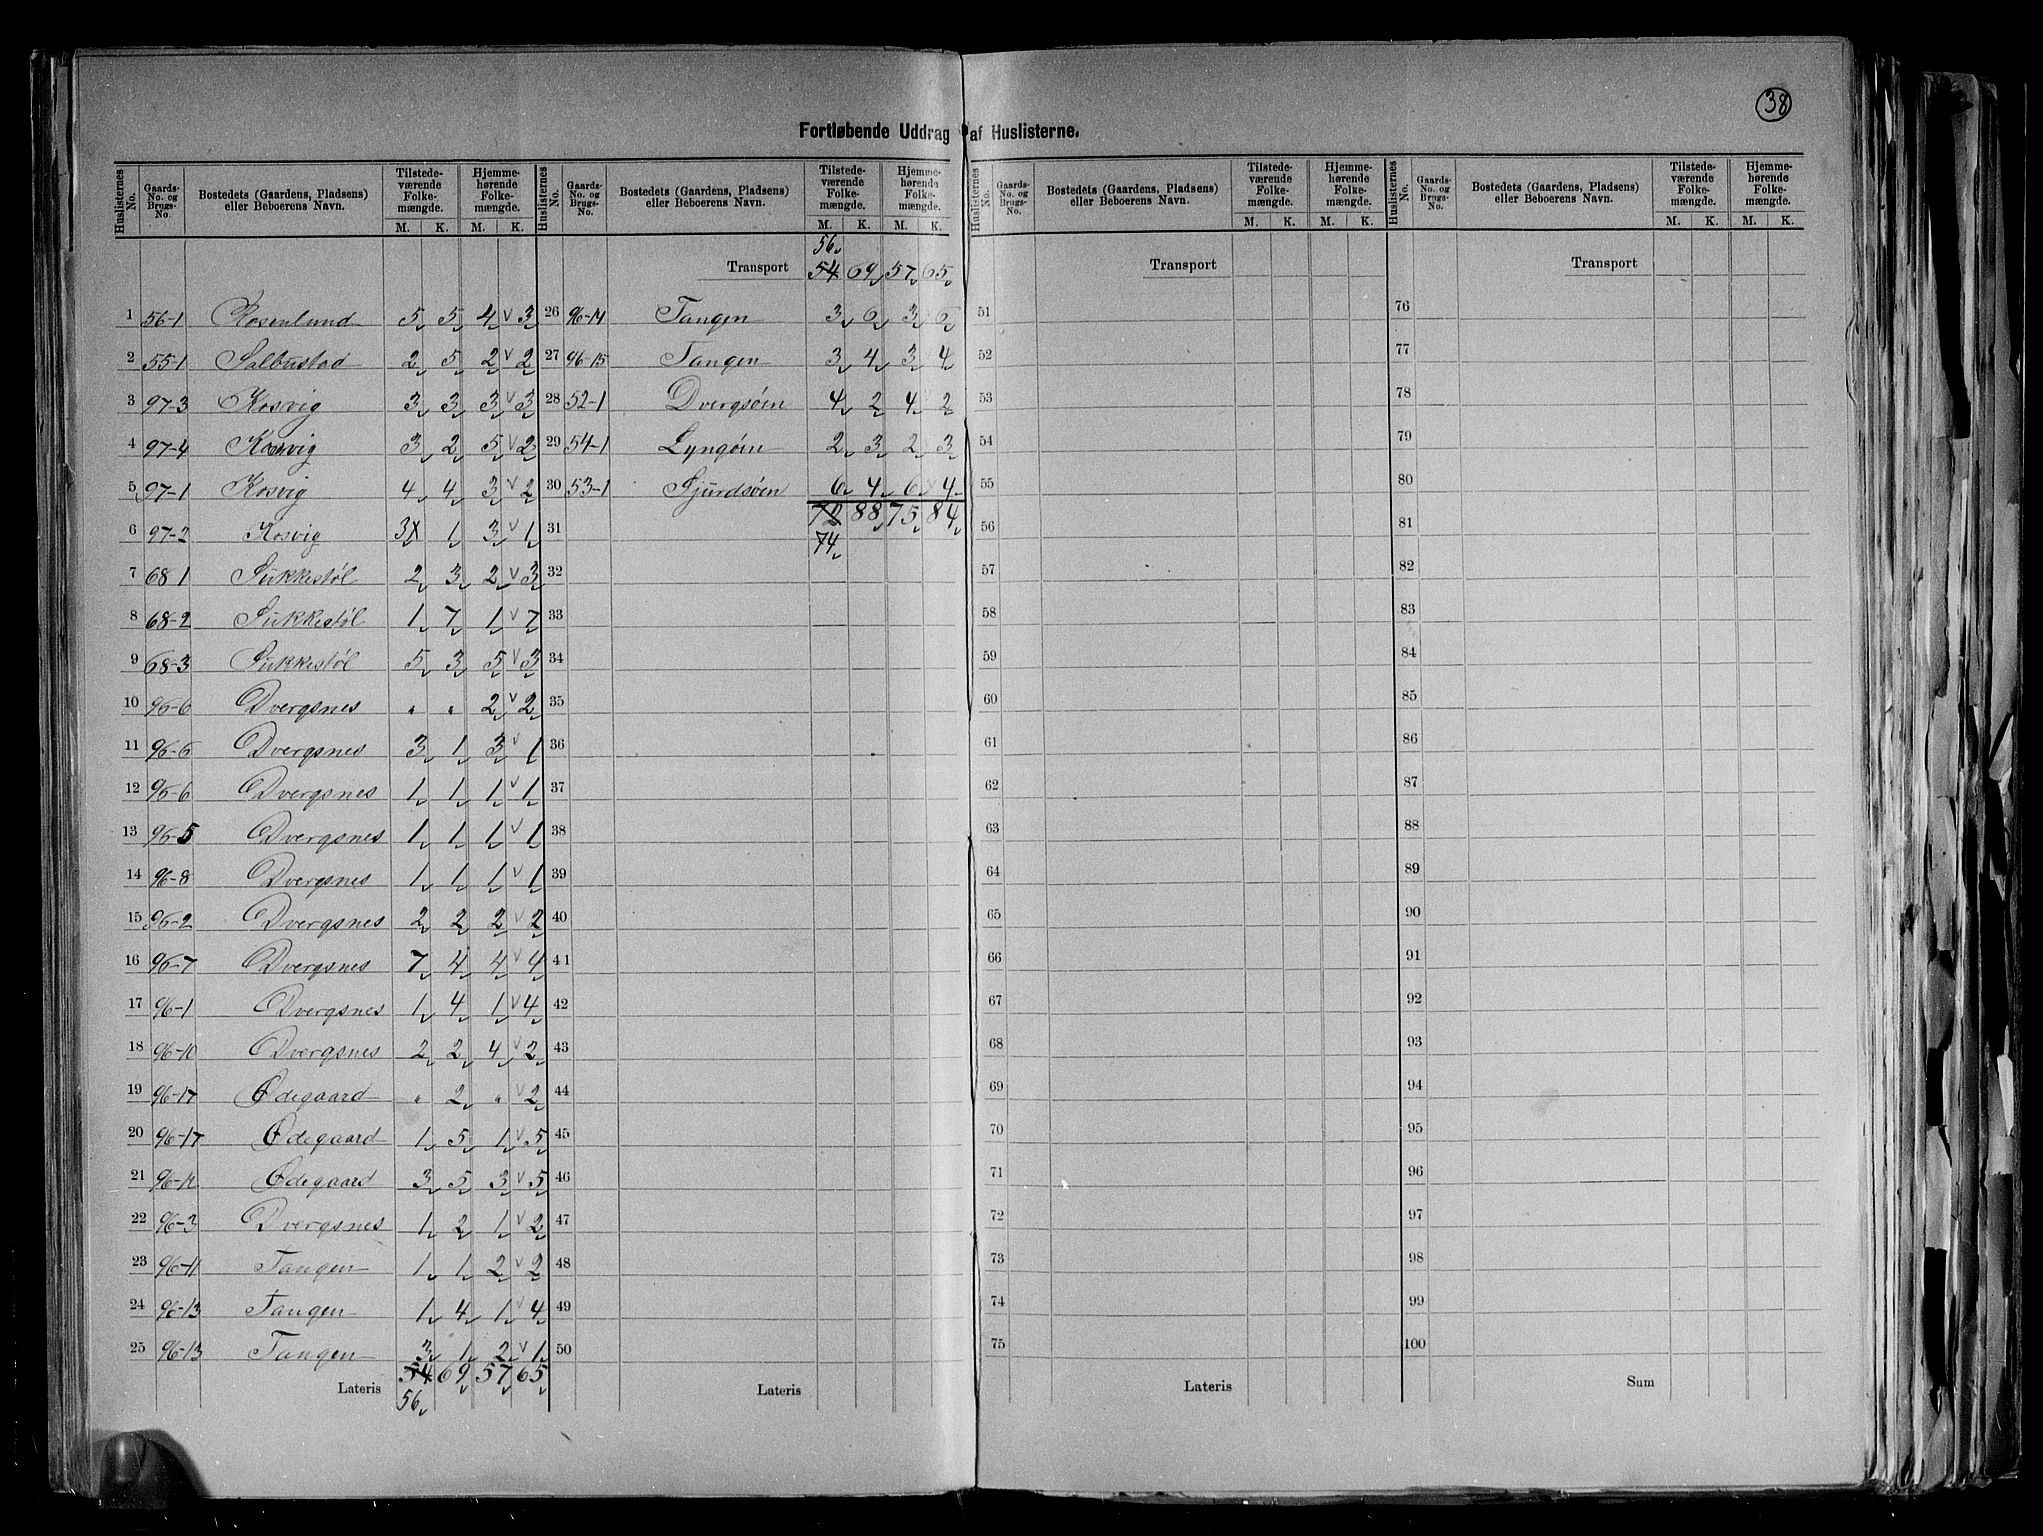 38
Fortløbende Uddrag af Huslisterne.
Huslisternes No. Gaards-No. og Brugs-No. Bostedets (Gaardens, Pladsens) eller Beboerens Navn. Tilstedeværende Folkemængde. M. K. Hjemmehørende Folkemængde. M. K.
Huslisternes No. Gaards-No. og Brugs-No. Bostedets (Gaardens, Pladsens) eller Beboerens Navn. Tilstedeværende Folkemængde. M. K. Hjemmehørende Folkemængde. M. K.
Huslisternes No. Gaards-No. og Brugs-No. Bostedets (Gaardens, Pladsens) eller Beboerens Navn. Tilstedeværende Folkemængde. M. K. Hjemmehørende Folkemængde. M. K.
Huslisternes No. Gaards-No. og Brugs-No. Bostedets (Gaardens, Pladsens) eller Beboerens Navn. Tilstedeværende Folkemængde. M. K. Hjemmehørende Folkemængde. M. K.
1 56-1 Rosenlund 5 5 4 3
2 55-1 Salbustad 2 5 2 2
3 97-3 Kosvig 3 3 3 3
4 97-4 Kosvig 3 2 5 2
5 97-1 Kosvig 4 4 3 2
6 97-2 Kosvig 3x 1 3 1
7 68 1 Sukkestøl 2 3 2 3
8 68-2 Sukkestøl 1 7 1 7
9 68-3 Sukkestøl 5 3 5 3
10 96-6 Dvergsnes " " 2 2
11 96-6 Dvergsnes 3 1 3 1
12 96-6 Dvergsnes 1 1 1 1
13 96-5 Dvergsnes 1 1 1 1
14 96-8 Dvergsnes 1 1 1 1
15 96-2 Dvergsnes 2 2 2 2
16 96-7 Dvergsnes 7 4 4 4
17 96-1 Dvergsnes 1 4 1 4
18 96-10 Dvergsnes 2 2 4 2
19 96-17 Ødegaard " 2 " 2
20 96-17 Ødegaard 1 5 1 5
21 Ødegaard 3 5 3 5
22 96-3 Dvergsnes 1 2 1 2
23 96-11 Tangen 1 1 2 2
24 96-13 Tangen 1 4 1 4
25 96-13 Tangen 3 1 2 1
Lateris 54 69 57 65
56
56
Transport 54 69 57 65
26 96-14 Tangen 3 6 3 6
27 96-15 Tangen 3 4 3 4
28 52-1 Dvergsøen 4 2 4 2
29 54-1 Lyngøen 2 3 2 3
30 53-1 Sjurdsøen 6 4 6 4
31 72 88 75 84
74
32
33
34
35
36
37
38
39
40
41
42
43
44
45
46
47
48
49
50
Lateris
Transport
51
52
53
54
55
56
57
58
59
60
61
62
63
64
65
66
67
68
69
70
71
72
73
74
75
Lateris
Transport
76
77
78
79
80
81
82
83
84
85
86
87
88
89
90
91
92
93
94
95
96
97
98
99
100
Sum